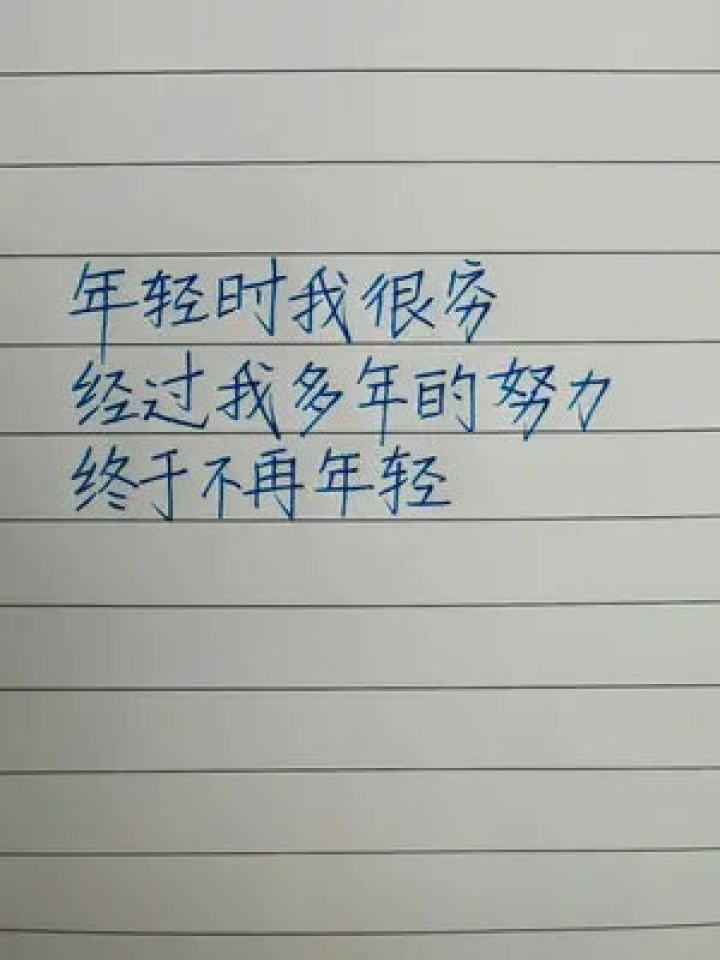 年轻时我很穷
经过我多年的努力
终于不再年轻